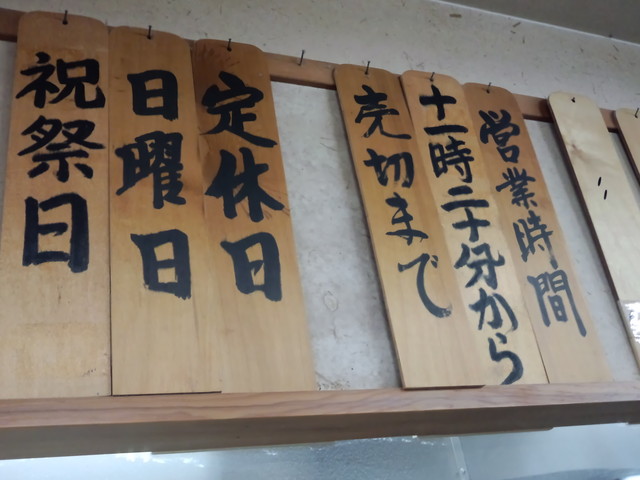 営業時間
十一時二十分から
売切まで
定休日
日曜日
祝祭日